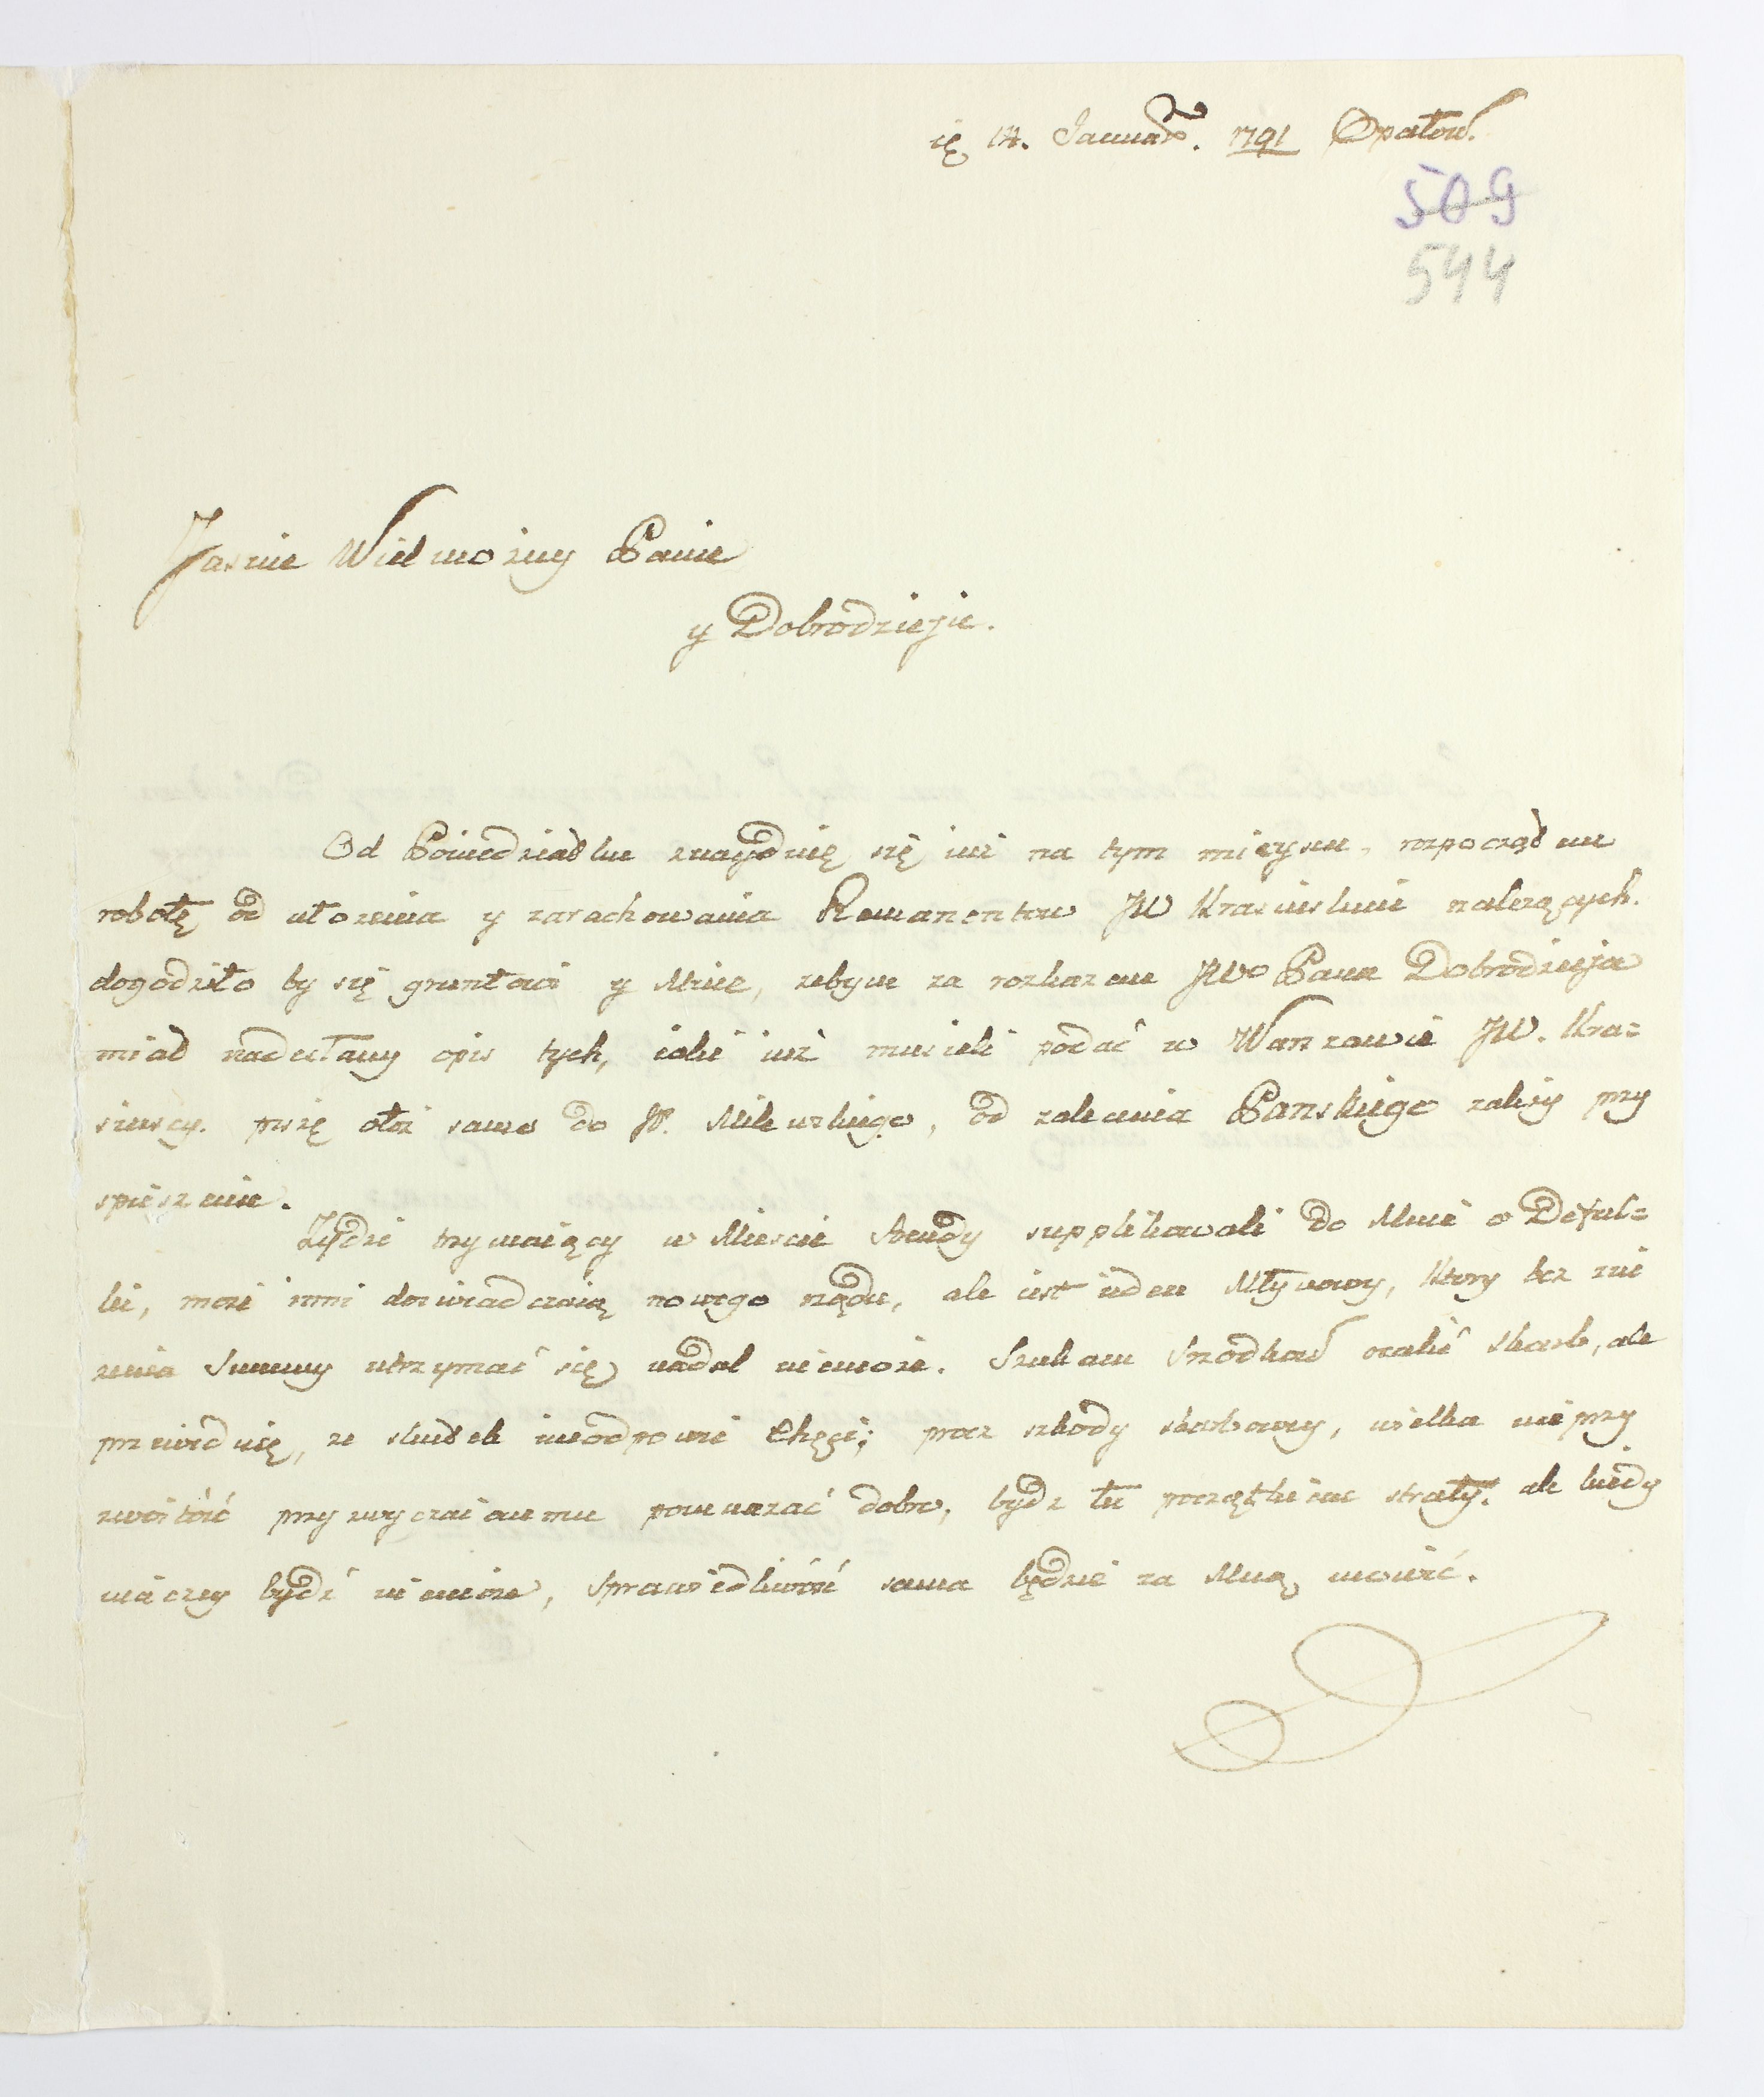 14. Januar. 1791 Opatow.
509
544
Jasnie Wielmożny Panie
y Dobrodzieju.
Od Poniedziałku znayduię się iuż na tym mieyscu, rozpocząłem
robotę od ułożenia y zarachowania Remanentow JW Krasinskim należących.
dogodziło by się gruntowi y Mnie, żebym za rozkazem JWo Pana Dobrodzieja
miał nadesłany opis tych, iakie iuż musieli podać w Warszawie JW. Kra=
sinscy. piszę otoż samo do JP. Milewskiego, od zalecenia Panskiego zależy przy
spieszenie.
Żydzi trzymaiący w Miescie Arendy supplikowali do Mnie o Defal=
ki, może inni doswiadczaią nowego rządu, ale iest ieden Młynowy, ktory bez zni
żenia Summy utrzymać się nadal niemoże. Szukam srzodkow ocalić skarb, ale
przewiduię, ze skutek nieodpowie Chęci; procz szkody skarbowey, wielka nieprzy
zwoitość przyzwyczaionemu pomnażać dobro, bydz tu początkiem straty. ale kiedy
inaczey bydź niemoże, Sprawiedliwość sama będzie za Mną mowić.